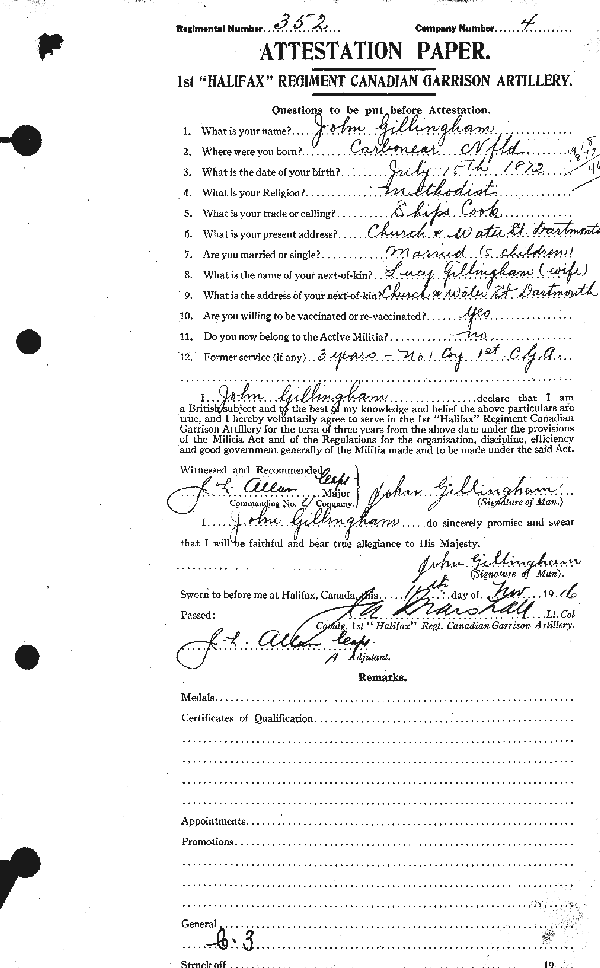 Regimental Number 352 Company Number 4
ATTESTATION PAPER.
1st "HALIFAX" REGIMENT CANADIAN GARRISON ARTILLERY.
Questions to be put before Attestation.
1. What is your name? John Gillingham
2. Where were you born? Carbonear Nfld
3. What is the date of your birth? July 15th 1872
4. What is your Religion? Methodist
5. What is your trade or calling? Ships Cook
6. What is your present address? Church & Water St. Dartmouth
7. Are you married or single? Married (5 children)
8. What is the name of your next-of-kin? Lucy Gillingham (wife)
9. What is the address of your next-of-kin Church & Water St. Dartmouth
10. Are you willing to be vaccinated or re-vaccinated? Yes
11. Do you now belong to the Active Militia? no
12. Former service (if any) 3 years - No. 1 Coy 1st C.G.A.
I John Gillingham declare that I am
a British subject and to the best of my knowledge and belief the above particulars are
true, and I hereby voluntarily agree to serve in the 1st "Halifax" Regiment Canadian
Garrison Artillery for the term of three years from the above date under the provisions
of the Militia Act and of the Regulations for the organisation, discipline, efficiency
and good government generally of the Militia made and to be made under the said Act.
Witnessed and Recommended
J. L. Allan Capt Major
Commanding No. 4 Company.
John Gillingham
(Signature of Man.)
I John Gillingham do sincerely promise and swear
that I will be faithful and bear true allegiance to His Majesty.
John Gillingham
(Signature of Man).
Sworn to before me at Halifax, Canada, this day of 1916
Passed: Marshall Lt. Col
Comdg. 1st "Halifax" Regt. Canadian Garrison Artillery.
J. L. Allan Capt.
A Adjutant.
Remarks.
Medals
Certificates of Qualification
Appointments
Promotions
General
6.3
Struck off 19